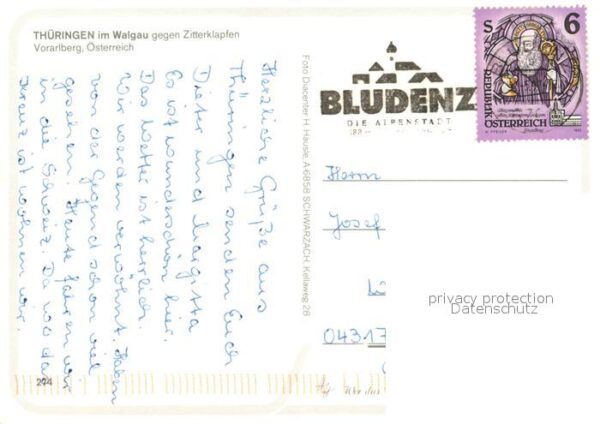 THÜRINGEN im Walgau gegen Zitterklapfen
Vorarlberg, Österreich
Herzliche Grüße aus
Thüringen senden Euch
Dieter und Margitta
Es ist wunderschön hier.
Das Wetter ist herrlich.
Wir werden verwöhnt. Haben
von der Gegend schon viel
gesehen. Heute fahren wir
in die Schweiz. Da wo das
Kreuz ist wohnen wir.
224
Foto Diacenter H. Hauste, A-6858 SCHWARZACH, Kellaweg 28
BLUDENZ
DIE ALPENSTADT
S 6
REPUBLIK
ÖSTERREICH
Herrn
Josef
04317
privacy protection
Datenschutz